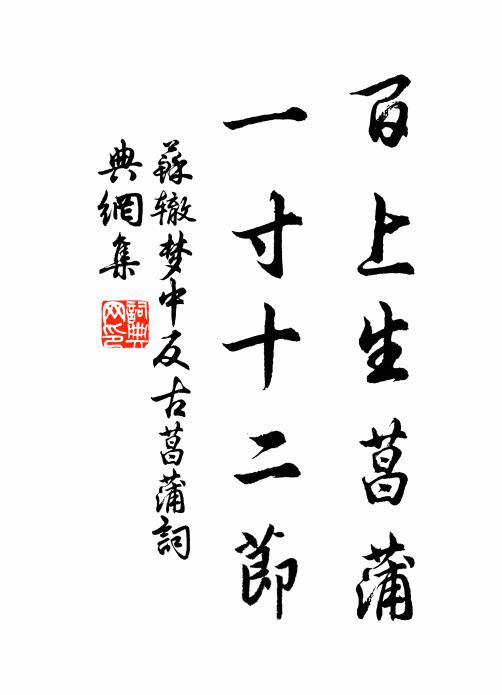 石上生菖蒲
一寸十二節
蘇辙梦中反古菖蒲詞
典網集
詞典
网印